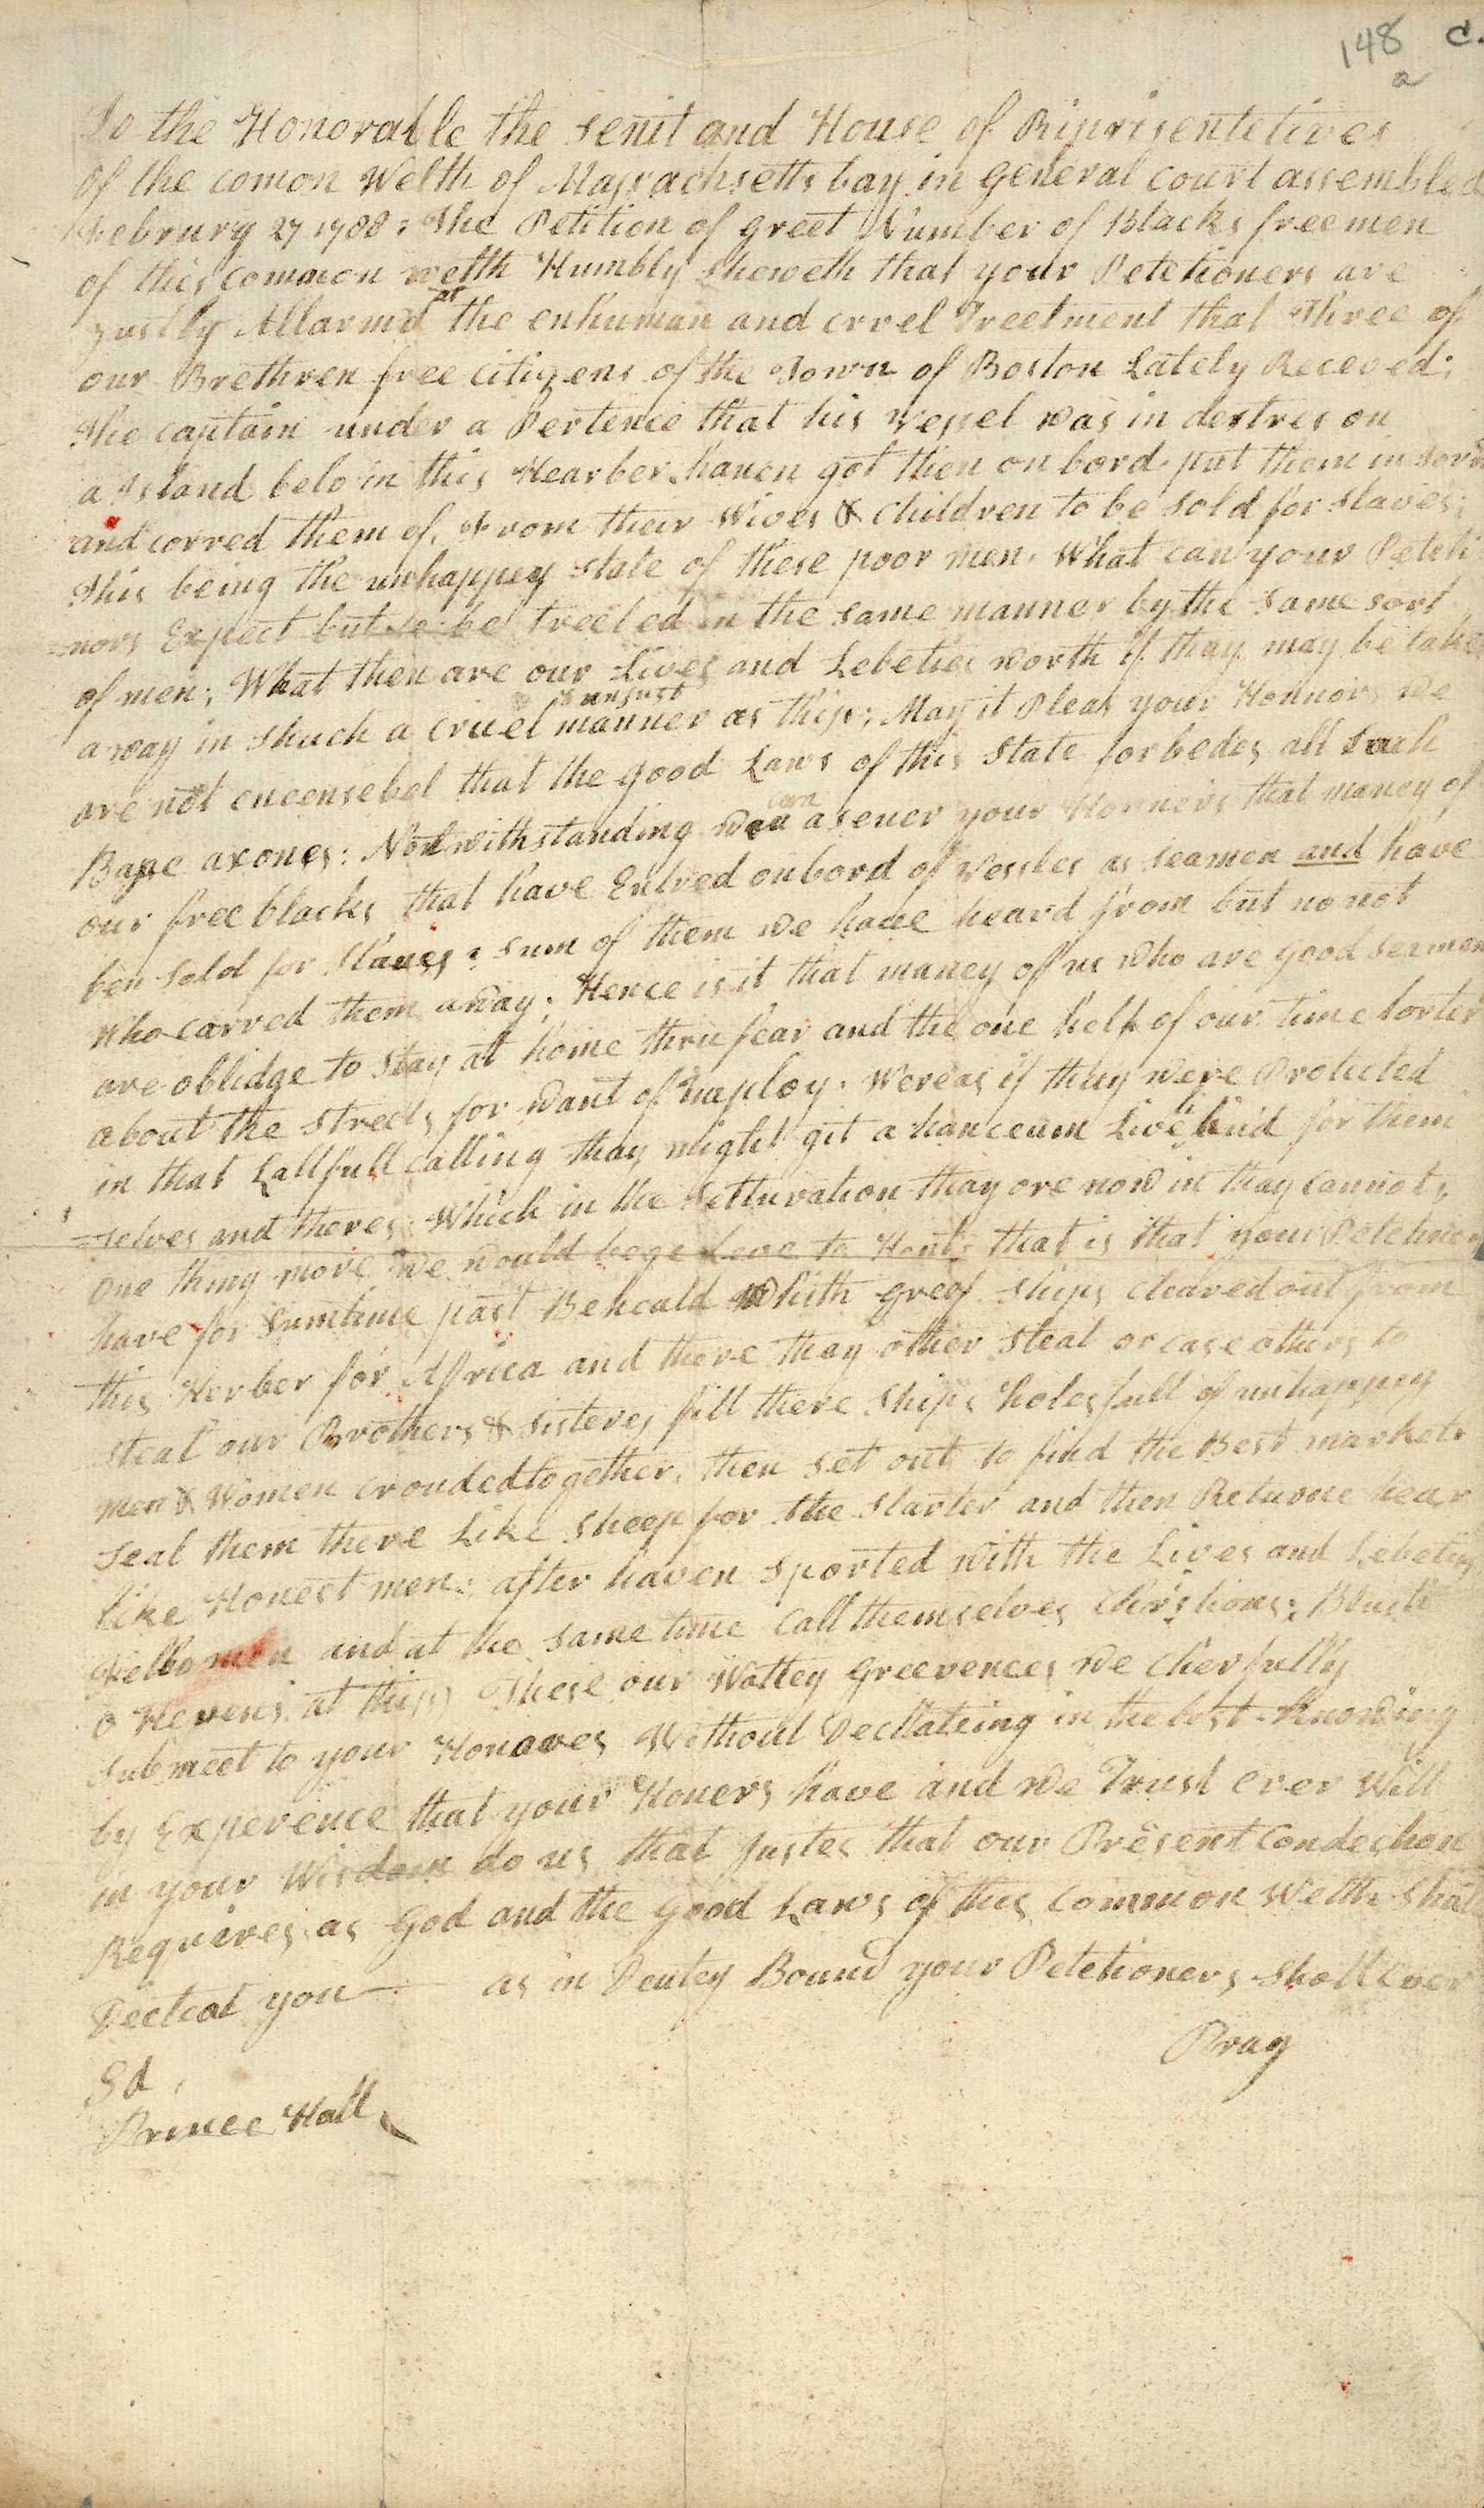 148 C.
a
To the Honorable the Senit and House of Riprisentetives
of the comon Welth of Massachsetts bay in General court assembled
Februrey 27 1788: The Petition of greet Number of Blacks freemen
of this common welth Humbly sheweth that your Petetioners are
justly Allarmd at the enhuman and crvel Treetment that Three of
our Brethren free citizens of the Town of Boston Lately Receved;
The captain under a Pertence that his vessel was in destres on
a Island belo in this Hearber haven got then on bord put them in
and corred them of, From their Wives & children to be sold for slaves;
This being the unhappey state of these poor men. What can your Peteti
nors Expect but to be treeted in the same manner by the same sort
of men; What then are our Lives and Lebeties worth if thay may be taken
away in shuch a cruel & unjust manner as this; May it Pleas your Honnors we
are not encensebel that the good Laws of this State forbedes all Such
Base axones: Notwithstanding we can aseuer your Honners that maney of
our free blacks that have Entred onbord of vessles as seamen and have
ben sold for Slaves & sum of them we have heard from but no not
Who carred them away; Hence is it that maney of us who are good seamen
are oblidge to stay at home thru fear and the one helf of our time lorter
about the streets for want of Imploy. Wereas if thay were Protected
in that Lallfull calling thay might git a hanceum livelihud for them
selves and theres: Which in the setturation thay are now in thay cannot.
One thing more we would bege Leve to Hent, that is that your Petetinors
have for sumtime past Beheald whith greef ships cleared out from
this Herber for Africa and there thay other steal or case others to
steal our Brothers & sisters fill there ships holes full of unhappey
men & Women crouded together, then set out to find the Best markets
seal them there Like sheep for the slarter and then Returne hear
like Honest men; after haven sported with the Lives and Lebeties
Fello men and at the same time call themselves Chirstions: Blush
o Hevens at this. These our Wattey greevences we cherfully
submeet to your Honores Without Decttateing in the lest knowing
by Experience that your Honers have and we Trust ever Will
in your Wisdom do us that Justes that our Present condechon
Requires as God and the good Laws of this Common Welth shall
Decteat you— as in Deutey Bound your Petetioners shall ever
Pray
Sd,
Prince Hall